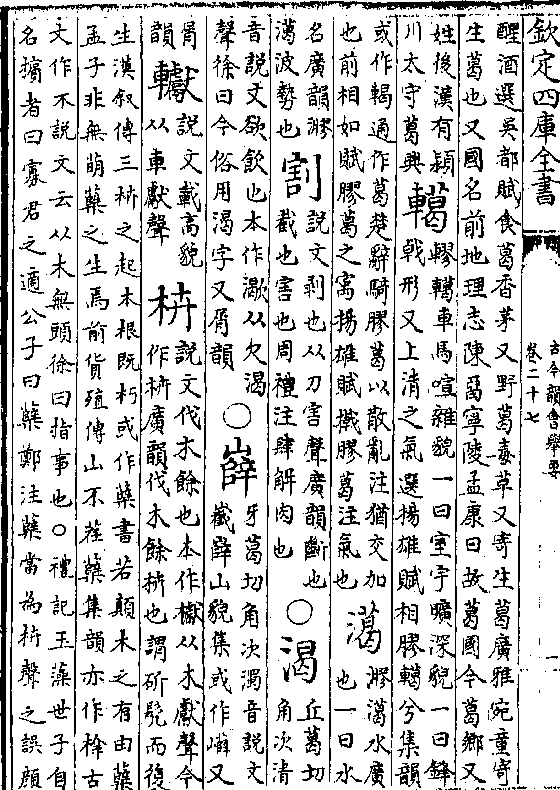 欽定四庫全書
古今韻會舉要
卷二十七
醒酒選吳都賦食葛香茅又野葛毒草又寄生葛廣雅宛童寄
生葛也又國名前地理志陳留寧陵孟康曰故葛國今葛鄉又
姓後漢有潁
川太守葛興
轕
轇轕車馬喧雜貌一曰室宇曠深貌一曰鋒
戟形又上清之氣選揚雄賦相膠轕兮集韻
或作輵通作葛楚辭騎膠葛以散亂注猶交加
也前相如賦膠葛之寓揚雄賦撠膠葛注氣也
㵧
膠㵧水廣
也一曰水
名廣韻膠
㵧波勢也
割
說文剥也从刀害聲廣韻斷也
截也害也周禮注肆解肉也
○渴
丘葛切
角次清
音說文欲飲也本作㵣从欠渴
聲徐曰今俗用渴字又屑韻
○嶭
牙葛切角次濁音說文
巀嶭山貌集或作又
屑
韻
轥
說文載高貌
从車獻聲
枿
說文伐木餘也本作㰕从木獻聲今
作枿廣韻伐木餘枿也謂斫髠而復
生漢叙傳三枿之起本根既朽或作蘖書若顛木之有由蘖
孟子非無萌蘖之生焉前貨殖傳山不茬蘖集韻亦作栓古
文作不說文云从木無頭徐曰指事也○禮記玉藻世子自
名擯者曰寡君之適公子曰蘖鄭注蘖當為枿聲之誤顔